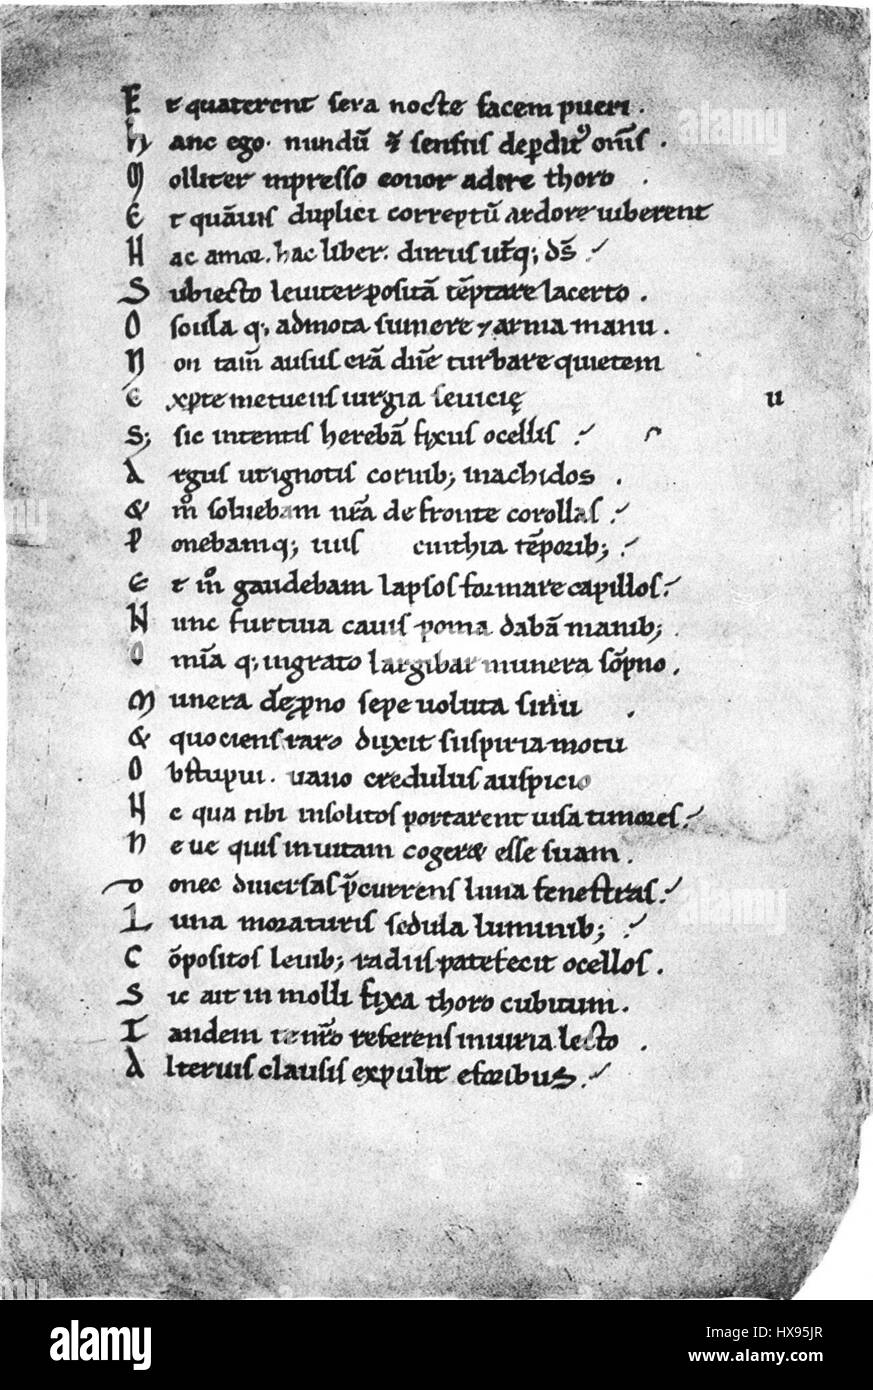 E t quaterent sera nocte facem pueri .
h anc ego . nundū & sensus deꝑdit᷒ om̄s .
M olliter inpresso conor adire thoro .
E t quāuis duplici correptū ardore iuberent
H ac amor . hac liber . durus ut̄q; ds̄
S ubiecto leuiter positā tēptare lacerto .
O scula q; admota sumere & arma manu .
N on tam̄ ausus erā dn̄e turbare quietem
E xꝑte metuens iurgia seuicię
u
S; sic intentis herebā fixus ocellis
A rgus ut ignotis cornib; inachidos .
& m̊ soluebam nr̄a de fronte corollas
P onebamq; tuis cinthia tēporib;
E t m̊ gaudebam lapsos formare capillos
N unc furtiua cauis poma dabā manib; .
O mīa q; ingrato largibar munera sōpno .
M unera de ꝓno sepe uoluta sinu .
& quociens raro duxit suspiria motu
O bstupui . uano credulus auspicio
N e qua tibi insolitos portarent uisa timores
N eue quis inuitam cogeret esse suam .
D onec diuersas p̄currens luna fenestras
L una moraturis sedula luminib;
C ōpositos leuib; radiis patefecit ocellos .
S ic ait in molli fixa thoro cubitum .
T andem te nr̄o referens iniuria lecto .
A lterius clausis expulit e foribus
alamy
alamy
HX95JR
www.alamy.com